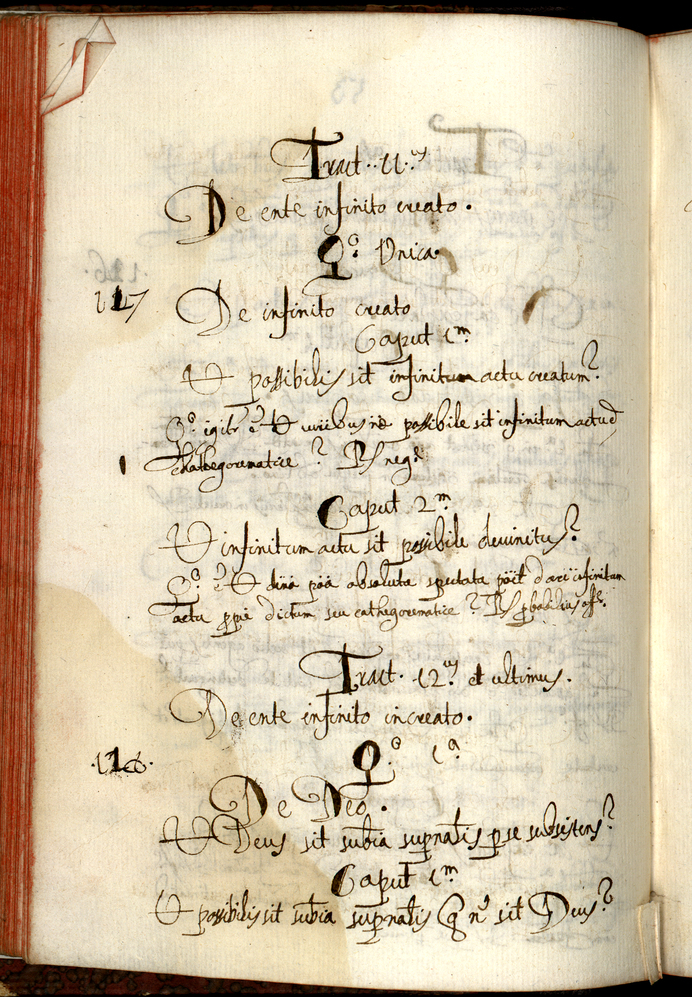 Tract. 11.us
De ente infinito creato.
Q.o Vnica.
117 De infinito creato
Caput 1.m
Ut possibilis sit infinitum actu creatum?
Q.o igitr. e Ut possibile sit infinitum actu
cathegorematice? Rs neg.e
Caput 2.m
Ut infinitum actu sit possibile devinitus?
Q.o e Ut dina poa absoluta spectata poit dari infinitum
actu ppie dictum seu cathegorematice? Rs probabilius aff.e
Tract. 12.us et ultimus.
De ente infinito increato.
Q.o 1.a
De Deo.
Ut Deus sit subia supnatis p se subsistens?
Caput 1.m
Ut possibilis sit subia supnatis q n sit Deus?